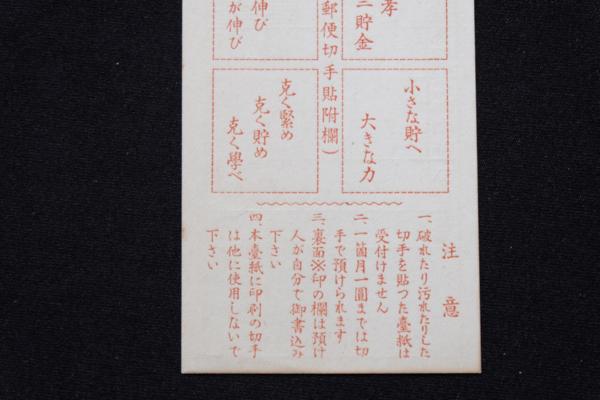 孝
貯金
郵便切手貼附欄）
伸び
が伸び
小さな貯へ
大きな力
克く緊め
克く貯め
克く學べ
注意
一、破れたり汚れたりした
切手を貼つた臺紙は
受付けません
二、一箇月一圓までは切
手で預けられます
三、裏面※印の欄は預け
人が自分で御書込み
下さい
四、本臺紙に印刷の切手
は他に使用しないで
下さい